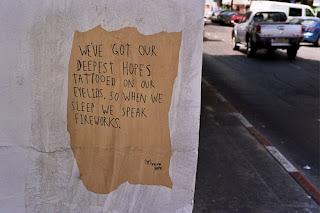 WE'VE GOT OUR
DEEPEST HOPES
TATTOOED ON OUR
EYELIDS, SO WHEN WE
SLEEP WE SPEAK
FIREWORKS.